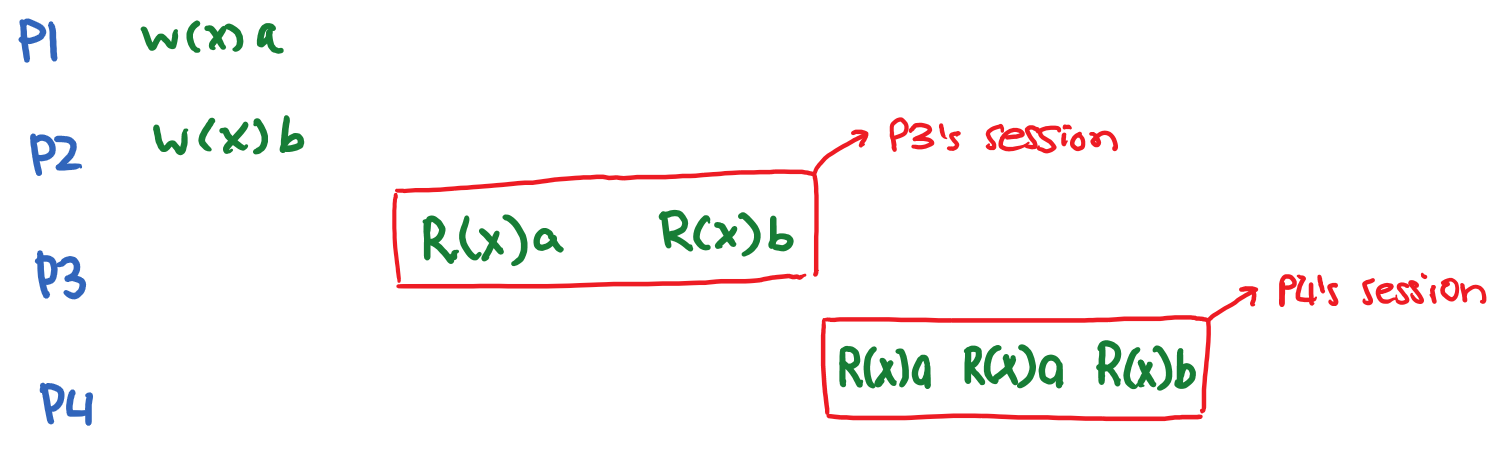 P1 W(x)a
P2 W(x)b
P3's session
P3 R(x)a R(x)b
P4's session
P4 R(x)a R(x)a R(x)b